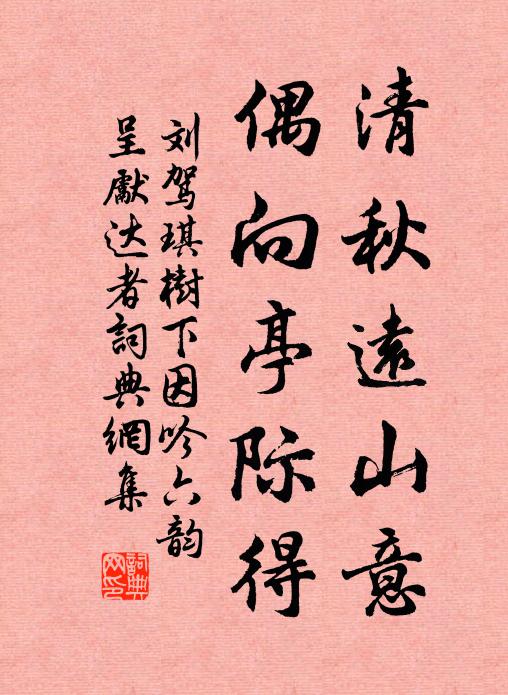 清秋遠山意
偶向亭际得
刘驾琪樹下因吟六韵
呈獻达者詞典網集
詞典
网印